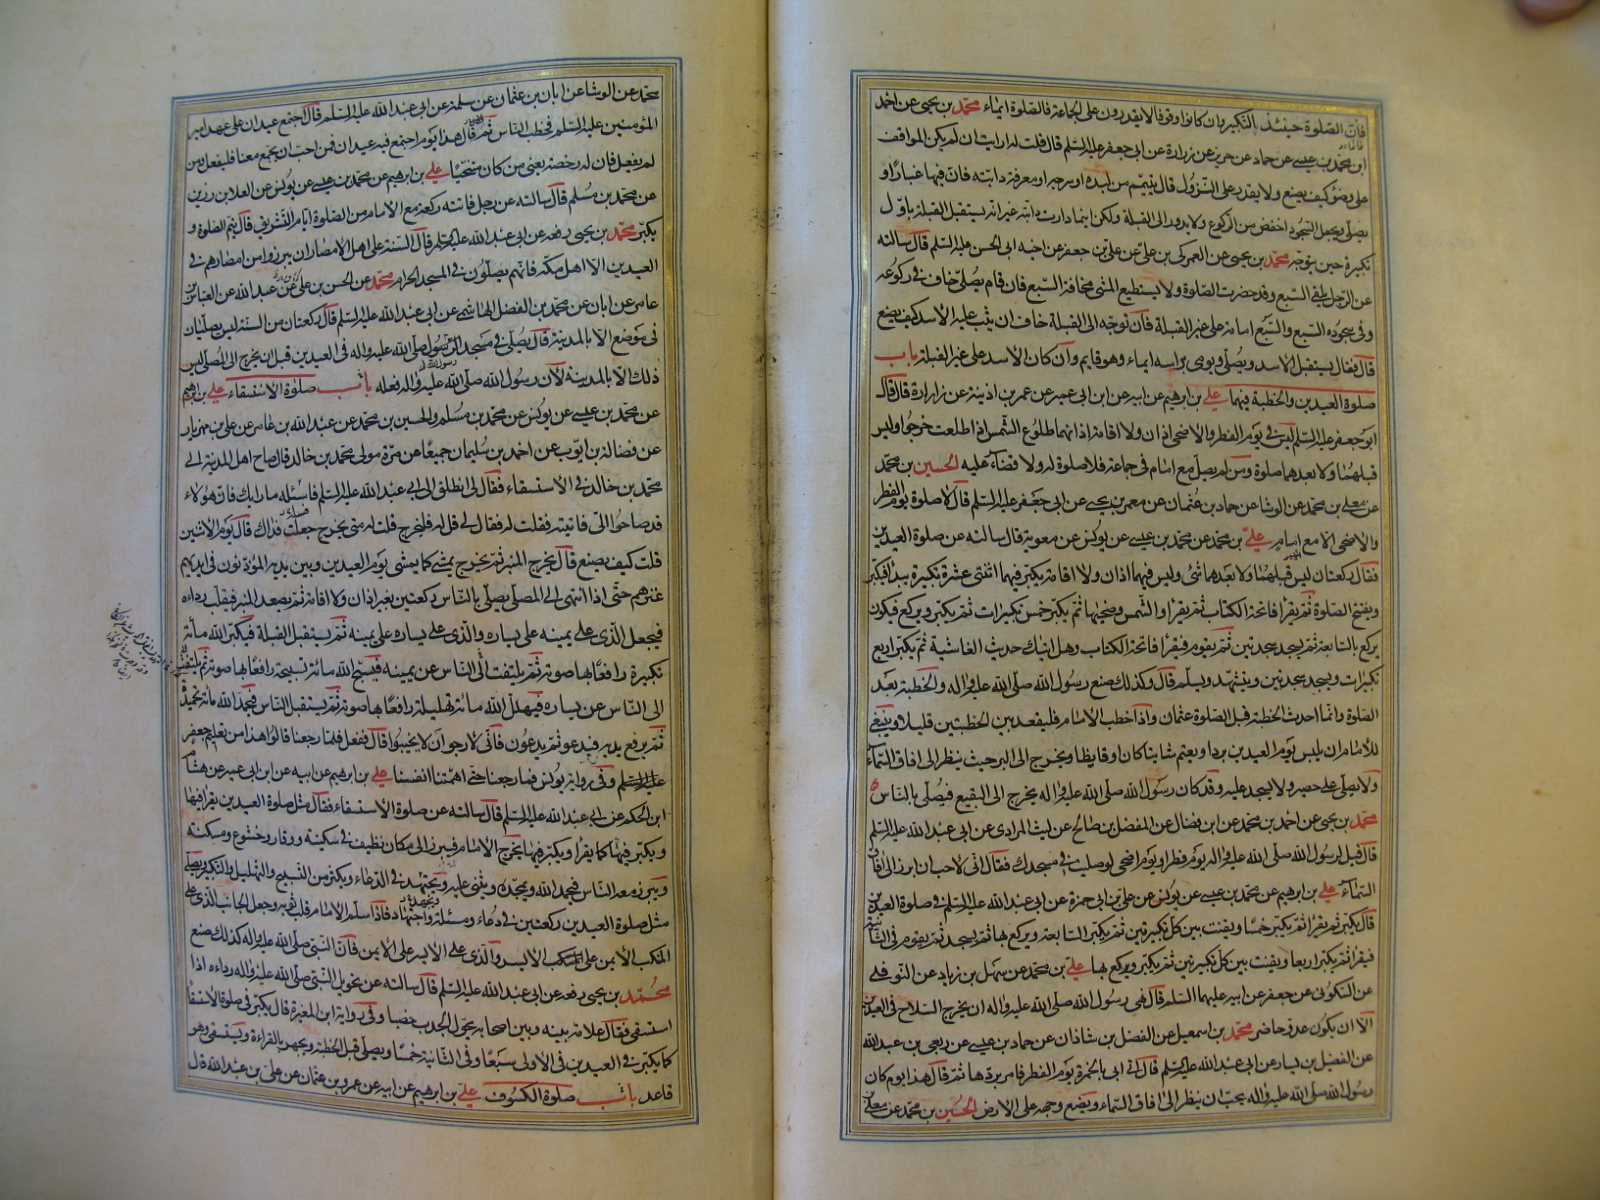 فانّ الصّلوة حينئذ بالتكبير وان كانوا وقوفا لا يقدرون على الجماعة فالصّلوة ايماء محمّد بن يحيى عن احمد
ابن محمّد بن عيسى عن حماد عن حريز عن زرارة عن ابى جعفر عليه السّلم قال قلت له ارايت ان لم يكن المواقف
على وضوء كيف يصنع ولا يقدر على النّزول قال يتيمّم من لبده او سرجه او معرفة دابّته فانّ فيها غبارا و
يصلّى ويجعل السّجود اخفض من الرّكوع ولا يدور الى القبلة ولكن اينما دارت دابّته غير انّه يستقبل القبلة باوّل
تكبيرة حين يتوجّه محمّد بن يحيى عن العمركى بن علىّ عن علىّ بن جعفر عن اخيه ابى الحسن عليه السّلم قال سالته
عن الرّجل يلقى السّبع وقد حضرت الصّلوة ولا يستطيع المشى مخافة السّبع فان قام يصلّى خاف فى ركوعه
وفى سجوده السّبع والسّبع امامه على غير القبلة فان توجّه الى القبلة خاف ان يثب عليه الاسد كيف يصنع
قال فقال يستقبل الاسد ويصلّى ويومى براسه ايماء وهو قايم وان كان الاسد على غير القبلة باب
صلوة العيدين والخطبة فيهما علىّ بن ابرهيم عن ابيه عن ابن ابى عمير عن عمر بن اذينة عن زرارة قال قال
ابو جعفر عليه السّلم ليس فى يوم الفطر والاضحى اذان ولا اقامة اذانهما طلوع الشّمس اذا طلعت خرجوا وليس
قبلهما ولا بعدهما صلوة ومن لم يصلّ مع امام فى جماعة فلا صلوة له ولا قضاء عليه الحسين بن محمّد
عن معلى بن محمّد عن الوشا عن حماد بن عثمان عن معمر بن يحيى عن ابى جعفر عليه السّلم قال لا صلوة يوم الفطر
والاضحى الا مع امام علىّ بن محمّد عن محمّد بن عيسى عن يونس عن معوية قال سالته عن صلوة العيدين
فقال ركعتان ليس قبلهما ولا بعدهما شى وليس فيهما اذان ولا اقامة يكبّر فيهما اثنتى عشرة تكبيرة يبدأ فيكبّر
ويفتح الصّلوة ثم يقرا فاتحة الكتاب ثم يقرا والشّمس وضحيها ثم يكبّر خمس تكبيرات ثم يكبّر ويركع فيكون
يركع بالسّابعة ثم يسجد سجدتين ثم يقوم فيقرا فاتحة الكتاب وهل اتيك حديث الغاشية ثم يكبّر اربع
تكبيرات ويسجد سجدتين ويتشهّد ويسلّم قال وكذلك صنع رسول الله صلّى الله عليه واله والخطبة بعد
الصّلوة وانّما احدث الخطبة قبل الصّلوة عثمان واذا خطب الامام فليقعد بين الخطبتين قليلا وينبغى
للامام ان يلبس يوم العيدين بردا ويعتم شاتيا كان او قايظا ويخرج الى البرّ حيث ينظر الى افاق السّماء
ولا يصلّى على حصير ولا يسجد عليه وقد كان رسول الله صلّى الله عليه واله يخرج الى البقيع فيصلّى بالنّاس
محمّد بن يحيى عن احمد بن محمّد عن ابن فضال عن المفضل بن صالح عن ليث المرادى عن ابى عبد الله عليه السّلم
قال قيل لرسول الله صلّى الله عليه واله يوم فطر او يوم اضحى لو صليت فى مسجدك فقال انّى لاحبّ ان ابرز الى افاق
السّماء علىّ بن ابرهيم عن محمّد بن عيسى عن يونس عن علىّ بن ابى حمزة عن ابى عبد الله عليه السّلم فى صلوة العيدين
قال يكبّر ثم يقرا ثم يكبّر خمسا ويقنت بين كلّ تكبيرتين ثم يكبّر السّابعة ويركع بها ثم يسجد ثم يقوم فى الثّانية
فيقرا ثم يكبّر اربعا ويقنت بين كلّ تكبيرتين ثم يكبّر ويركع بها علىّ بن محمّد عن سهل بن زياد عن النّوفلى
عن السّكونى عن جعفر عن ابيه عليهما السّلم قال نهى رسول الله صلّى الله عليه واله ان يخرج السّلاح فى العيدين
الّا ان يكون عدوّ حاضر محمّد بن اسمعيل عن الفضل بن شاذان عن حماد بن عيسى عن ربعى بن عبد الله
عن الفضيل بن يسار عن ابى عبد الله عليه السّلم قال اتى ابى بالخمرة يوم الفطر فامر بردّها ثم قال هذا يوم كان
رسول الله صلّى الله عليه واله يحبّ ان ينظر الى افاق السّماء ويضع وجهه على الارض الحسين بن محمّد عن معلى بن
محمّد عن الوشا عن ابان بن عثمان عن سلمة عن ابى عبد الله عليه السّلم قال اجتمع عيدان على عهد امير
المؤمنين عليه السّلم فخطب النّاس ثم قال هذا يوم اجتمع فيه عيدان فمن احبّ ان يجمع معنا فليفعل ومن
لم يفعل فان له رخصة يعنى من كان متنحّيا علىّ بن ابرهيم عن محمّد بن عيسى عن يونس عن العلا بن رزين
عن محمّد بن مسلم قال سالته عن رجل فاتته ركعة مع الامام من الصّلوة ايام التّشريق قال يتمّ الصّلوة و
يكبّر محمّد بن يحيى رفعه عن ابى عبد الله عليه السّلم قال السّنة على اهل الامصار ان يبرزوا من امصارهم فى
العيدين الّا اهل مكة فانّهم يصلّون فى المسجد الحرام محمّد عن الحسن بن على عن عبد الله عن العباس بن
عامر عن ابان عن محمّد بن الفضل الهاشمى عن ابى عبد الله عليه السّلم قال ركعتان من السّنة ليس يصلّيان
فى موضع الّا بالمدينة قال يصلّى فى مسجد رسول الله صلّى الله عليه واله فى العيدين قبل ان يخرج الى المصلّى ليس
ذلك الّا بالمدينة لانّ رسول الله صلّى الله عليه واله فعله باب صلوة الاستسقاء علىّ بن ابرهيم
عن محمّد بن عيسى عن يونس عن محمّد بن مسلم والحسين بن محمّد عن عبد الله بن عامر عن على بن مهزيار
عن فضالة بن ايّوب عن احمد بن سليمان جميعا عن مرّة مولى محمّد بن خالد قال صاح اهل المدينة الى
محمّد بن خالد فى الاستسقاء فقال لى انطلق الى ابى عبد الله عليه السّلم فاسئله ما رايك فانّ هؤلاء
قد صاحوا الىّ فاتيته فقلت له فقال لى قل له فليخرج قلت له متى يخرج جعلت فداك قال يوم الاثنين
قلت كيف يصنع قال يخرج المنبر ثم يخرج يمشى كما يمشى يوم العيدين وبين يديه المؤذّنون فى ايديهم
عنزهم حتّى اذا انتهى الى المصلّى يصلّى بالنّاس ركعتين بغير اذان ولا اقامة ثم يصعد المنبر فيقلب رداءه
فيجعل الّذى على يمينه على يساره والّذى على يساره على يمينه ثم يستقبل القبلة فيكبّر الله مائة
تكبيرة رافعا بها صوته ثم يلتفت الى النّاس عن يمينه فيسبّح الله مائة تسبيحة رافعا بها صوته ثم يلتفت
الى النّاس عن يساره فيهلّل الله مائة تهليلة رافعا بها صوته ثم يستقبل النّاس فيحمد الله مائة تحميدة
ثم يرفع يديه فيدعو ثم يدعون فانّى لارجو ان لا يخيبوا قال ففعل فلمّا رجعنا قالوا هذا من تعليم جعفر
عليه السّلم وفى رواية يونس فما رجعنا حتّى اهمّتنا انفسنا علىّ بن ابرهيم عن ابيه عن ابن ابى عمير عن هشام
ابن الحكم عن ابى عبد الله عليه السّلم قال سالته عن صلوة الاستسقاء فقال مثل صلوة العيدين يقرا فيها
ويكبّر فيها كما يقرا ويكبّر فيها يخرج الامام فيبرز الى مكان نظيف فى سكينة ووقار وخشوع ومسكنة
ويبرز معه النّاس فيحمد الله ويمجّده ويثنى عليه ويجتهد فى الدّعاء ويكثر من التّسبيح والتّهليل والتّكبير ويصلّى
مثل صلوة العيدين ركعتين فى دعاء ومسئلة واجتهاد فاذا سلّم الامام قلب ثوبه وجعل الجانب الّذى على
المنكب الأيمن على المنكب الأيسر والّذى على الأيسر على الأيمن فانّ النّبى صلّى الله عليه واله كذلك صنع
محمّد بن يحيى رفعه عن ابى عبد الله عليه السّلم قال سالته عن تحويل النّبى صلّى الله عليه واله رداءه اذا
استسقى فقال علامة بينه وبين اصحابه يحوّل الجدب خصبا وفى رواية ابن المغيرة قال يكبّر فى صلوة الاستسقاء
كما يكبّر فى العيدين فى الأولى سبعا وفى الثّانية خمسا ويصلّى قبل الخطبة ويجهر بالقراءة ويستسقى وهو
قاعد باب صلوة الكسوف علىّ بن ابرهيم عن ابيه عن عمرو بن عثمان عن على بن عبد الله قال